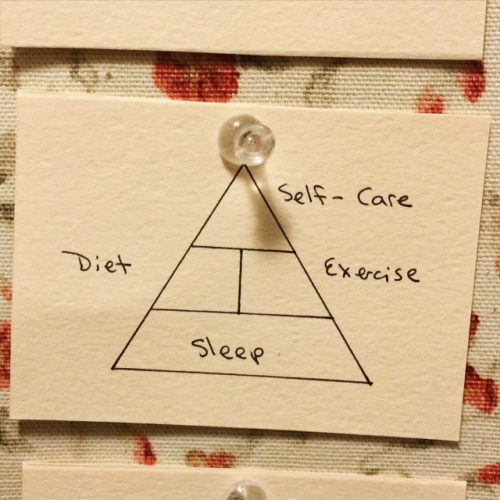 Self-Care
Diet
Exercise
Sleep